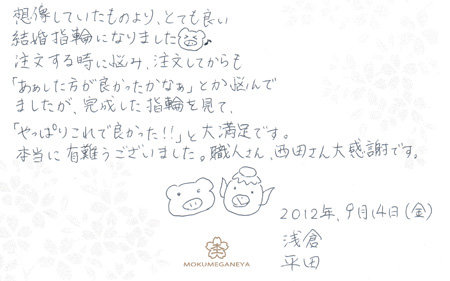 想像していたものより、とても良い
結婚指輪になりました♪
注文する時に悩み、注文してからも
「あぁした方が良かったかなぁ」とか悩んで
ましたが、完成した指輪を見て、
「やっぱりこれで良かった!!」と大満足です。
本当に有難うございました。職人さん、西田さん大感謝です。
2012年、9月14日(金)
浅倉
平田
MOKUMEGANEYA